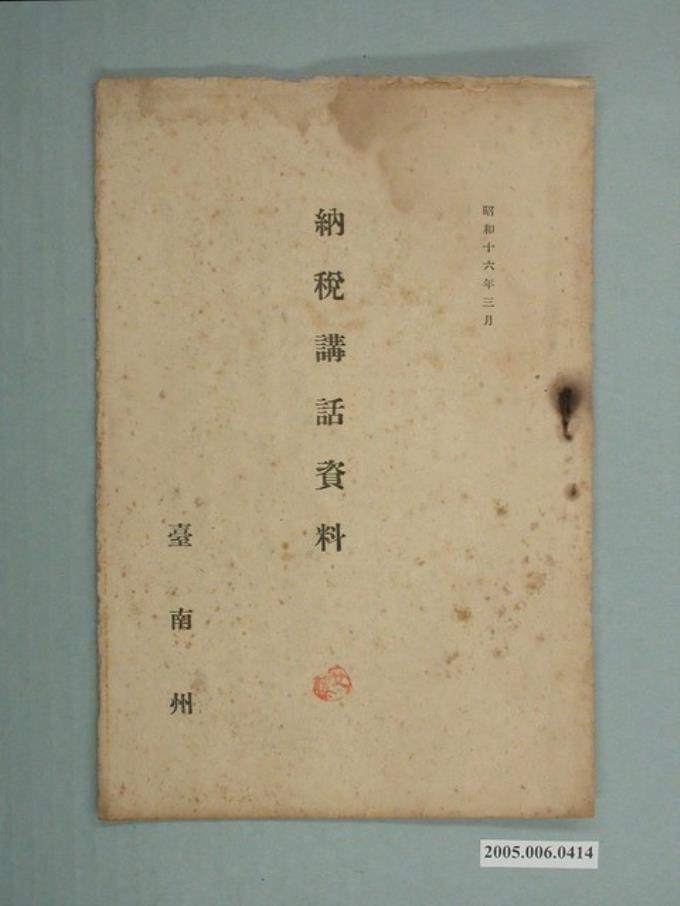 昭和十六年三月
納稅講話資料
臺南州
2005.006.0414